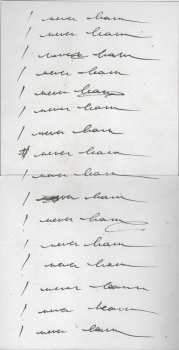 I never learn
I never learn
I never learn
I never learn
I never learn
I never learn
I never learn
I never learn
I never learn
I never learn
I never learn
I never learn
I never learn
I never learn
I never learn
I never learn